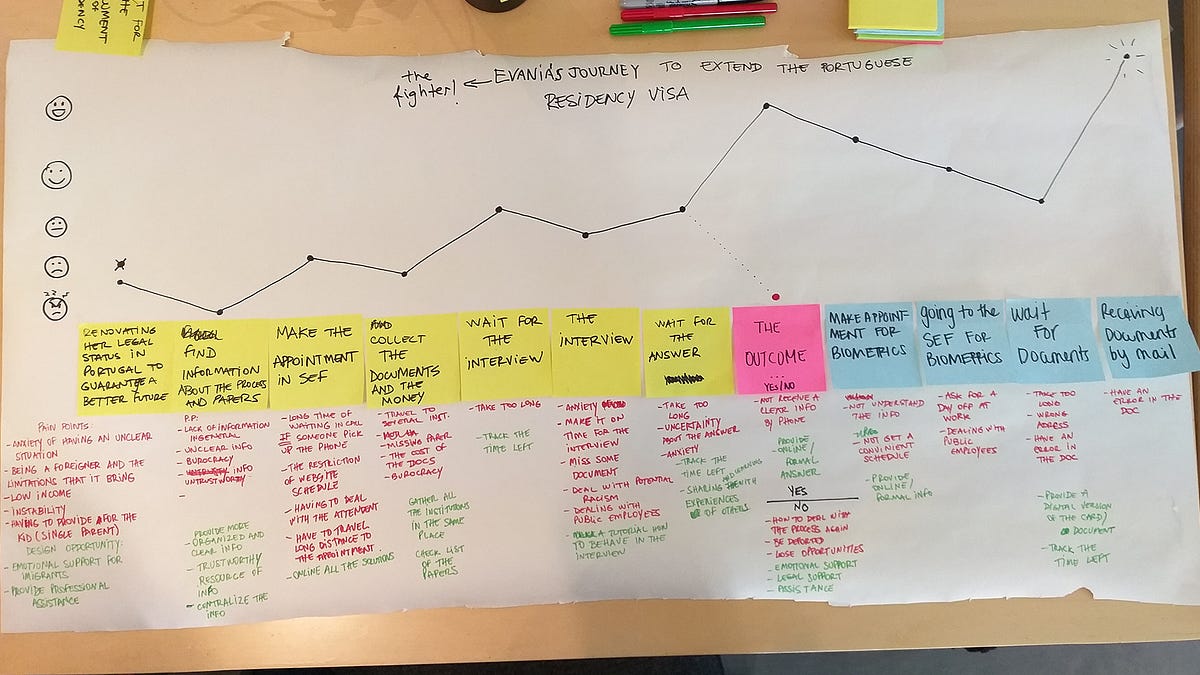 T FOR
THE
UMENT
OF
ENCY
the
fighter!
EVANIA'S JOURNEY TO EXTEND THE PORTUGUESE
RESIDENCY VISA
RENOVATING
HER LEGAL
STATUS IN
PORTUGAL TO
GUARANTEE A
BETTER FUTURE
FIND
INFORMATION
ABOUT THE PROCESS
AND PAPERS
MAKE THE
APPOINTMENT
IN SEF
COLLECT
THE
DOCUMENTS
AND THE
MONEY
WAIT FOR
THE
INTERVIEW
THE
INTERVIEW
WAIT FOR
THE
ANSWER
THE
OUTCOME
...
YES/NO
MAKE APPOINT-
MENT FOR
BIOMETRICS
going to the
SEF FOR
BIOMETRICS
Wait
FOR
Documents
Receiving
Documents
by mail
PAIN POINTS:
- ANXIETY OF HAVING AN UNCLEAR
SITUATION
- BEING A FOREIGNER AND THE
LIMITATIONS THAT IT BRING
- LOW INCOME
- INSTABILITY
- HAVING TO PROVIDE FOR THE
KID (SINGLE PARENT)
DESIGN OPPORTUNITY:
- EMOTIONAL SUPPORT FOR
IMIGRANTS
- PROVIDE PROFESSIONAL
ASSISTANCE
P.P:
- LACK OF INFORMATION
IN GENERAL
- UNCLEAR INFO
- BUROCRACY
- INFO
UNTRUSTWORTY
-
PROVIDE MORE
ORGANIZED AND
CLEAR INFO
- TRUSTWORTHY
RESOURCE OF
INFO
- CENTRALIZE THE
INFO
- LONG TIME OF
WAITING IN CALL
IF SOMEONE PICK
UP THE PHONE
- THE RESTRICTION
OF WEBSITE
SCHEDULE
- HAVING TO DEAL
WITH THE ATTENDENT
- HAVE TO TRAVEL
LONG DISTANCE TO
THE APPOINTMENT
- ONLINE ALL THE SOLUTIONS
- TRAVEL TO
SEVERAL INST.
- MISSING PAPER
- THE COST OF
THE DOCS
- BUROCRACY
GATHER ALL
THE INSTITUTIONS
IN THE SAME
PLACE
CHECK LIST
OF THE
PAPERS
- TAKE TOO LONG
- TRACK THE
TIME LEFT
- ANXIETY
- MAKE IT ON
TIME FOR THE
INTERVIEW
- MISS SOME
DOCUMENT
- DEAL WITH POTENTIAL
RACISM
- DEALING WITH
PUBLIC EMPLOYEES
- A TUTORIAL HOW
TO BEHAVE IN THE
INTERVIEW
- TAKE TOO
LONG
- UNCERTAINTY
ABOUT THE ANSWER
- ANXIETY
- TRACK THE
TIME LEFT
- SHARING AND LEARNING WITH
EXPERIENCES
OF OTHERS
- NOT RECEIVE A
CLEAR INFO
BY PHONE
PROVIDE
ONLINE/
FORMAL
ANSWER
YES
NO
- HOW TO DEAL WITH
THE PROCESS AGAIN
- BE DEPORTED
- LOSE OPPORTUNITIES
- EMOTIONAL SUPPORT
- LEGAL SUPPORT
- ASSISTANCE
- NOT UNDERSTAND
THE INFO
- NOT GET A
CONVENIENT
SCHEDULE
- PROVIDE
ONLINE/
FORMAL INFO
- ASK FOR A
DAY OFF AT
WORK
- DEALING WITH
PUBLIC
EMPLOYEES
- TAKE TOO
LONG
- WRONG
ADRESS
- HAVE AN
ERROR IN
THE DOC
- PROVIDE A
DIGITAL VERSION
OF THE CARD/
DOCUMENT
- TRACK THE
TIME LEFT
- HAVE AN
ERROR IN THE
DOC